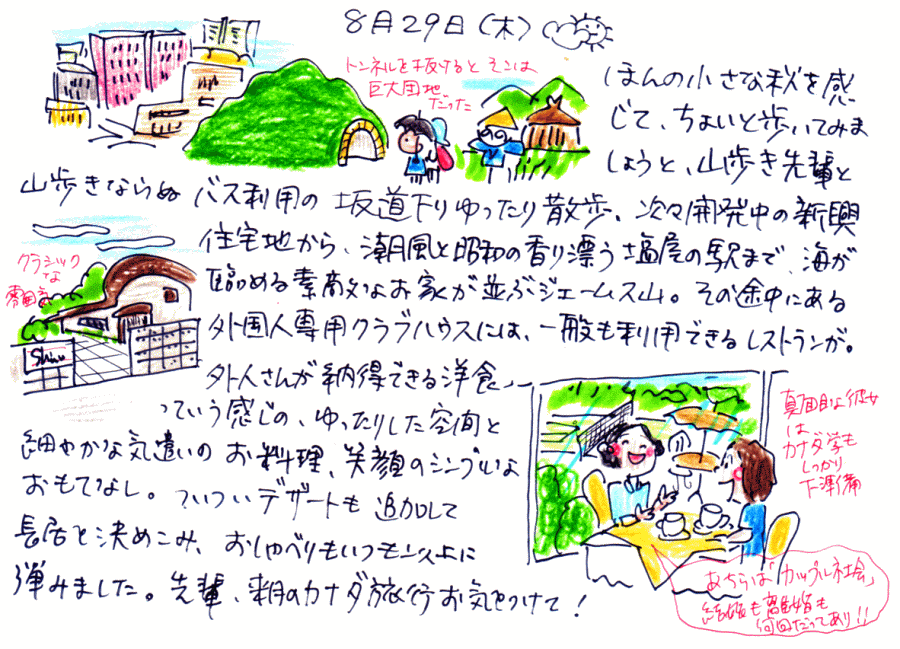 8月29日(木)
トンネルを抜けるとそこは
巨大団地
だった
ほんの小さな秋を感
じて、ちょいと歩いてみま
しょうと、山歩き先輩と
山歩きならぬ バス利用の 坂道下りゆったり散歩、次々開発中の新興
住宅地から、潮風と昭和の香り漂う塩屋の駅まで、海が
臨める素敵なお家が並ぶジェームス山。その途中にある
外国人専用クラブハウスには、一般も利用できるレストランが。
クラシック
な
雰囲気
外人さんが納得できる洋食
っていう感じの、ゆったりした空間と
細やかな気遣いのお料理、笑顔のシンプルな
おもてなし。ついついデザートも追加して
長居と決めこみ、おしゃべりもいつも以上に
弾みました。先輩、来月のカナダ旅行お気をつけて!
真面目な彼女
は
カナダ学も
しっかり
下準備
あちらは「カップル社会」
結婚も離婚も
何回だってあり!!